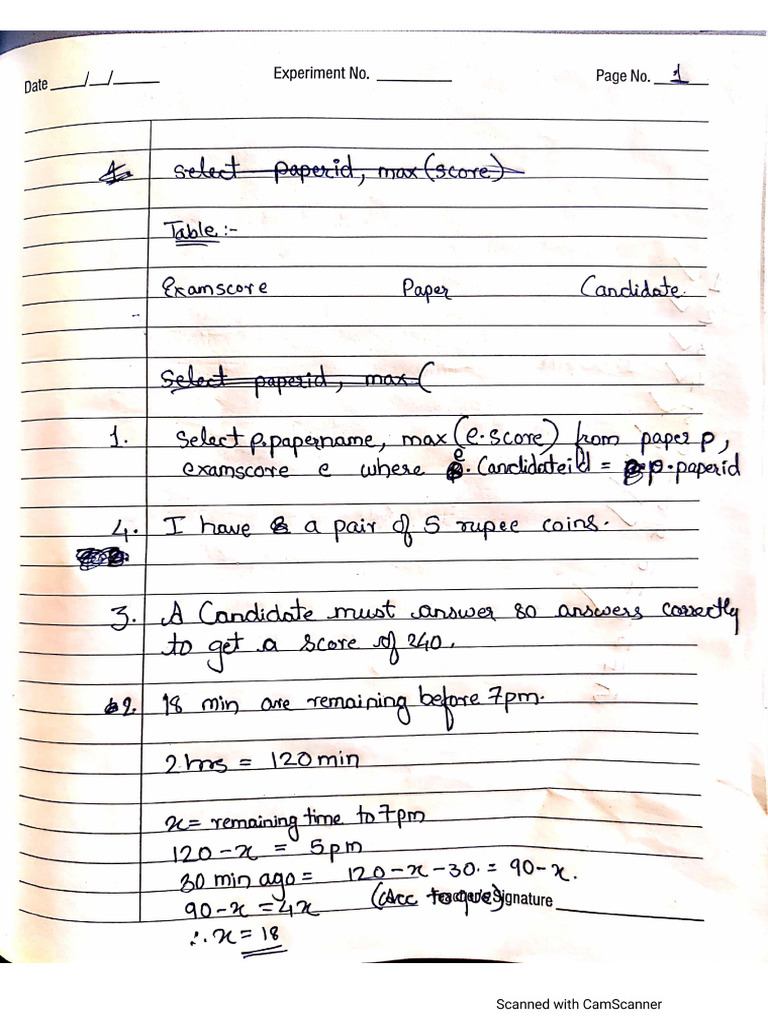 Date ___/__/_____ Experiment No. _________ Page No. 1
1. select paperid, max(score)
Table:-
Examscore Paper Candidate.
Select paperid, max(
1. Select p.papername, max(e.score) from paper p,
examscore e where e.Candidateid = p.paperid
4. I have a pair of 5 rupee coins.
3. A Candidate must answer 80 answers correctly
to get a score of 240.
2. 18 min are remaining before 7pm.
2 hrs = 120 min
x = remaining time to 7pm
120-x = 5pm
30 min ago = 120-x-30 = 90-x.
90-x = 4x (Acc to que) Teacher's Signature
∴ x = 18
Scanned with CamScanner